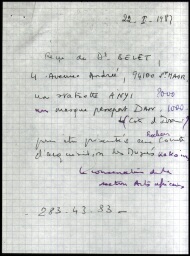 22 - X - 1987
Reçu de Mr BELET,
4 Avenue André, 94100 St MAUR
une statuette ANYI 9000
un masque passeport DAN. 1000
(Côte d'Ivoire)
pour être présentés au Comité
d'acquisition des Musées
Le conservateur de la
section Arts africains
- 283.43.93 -